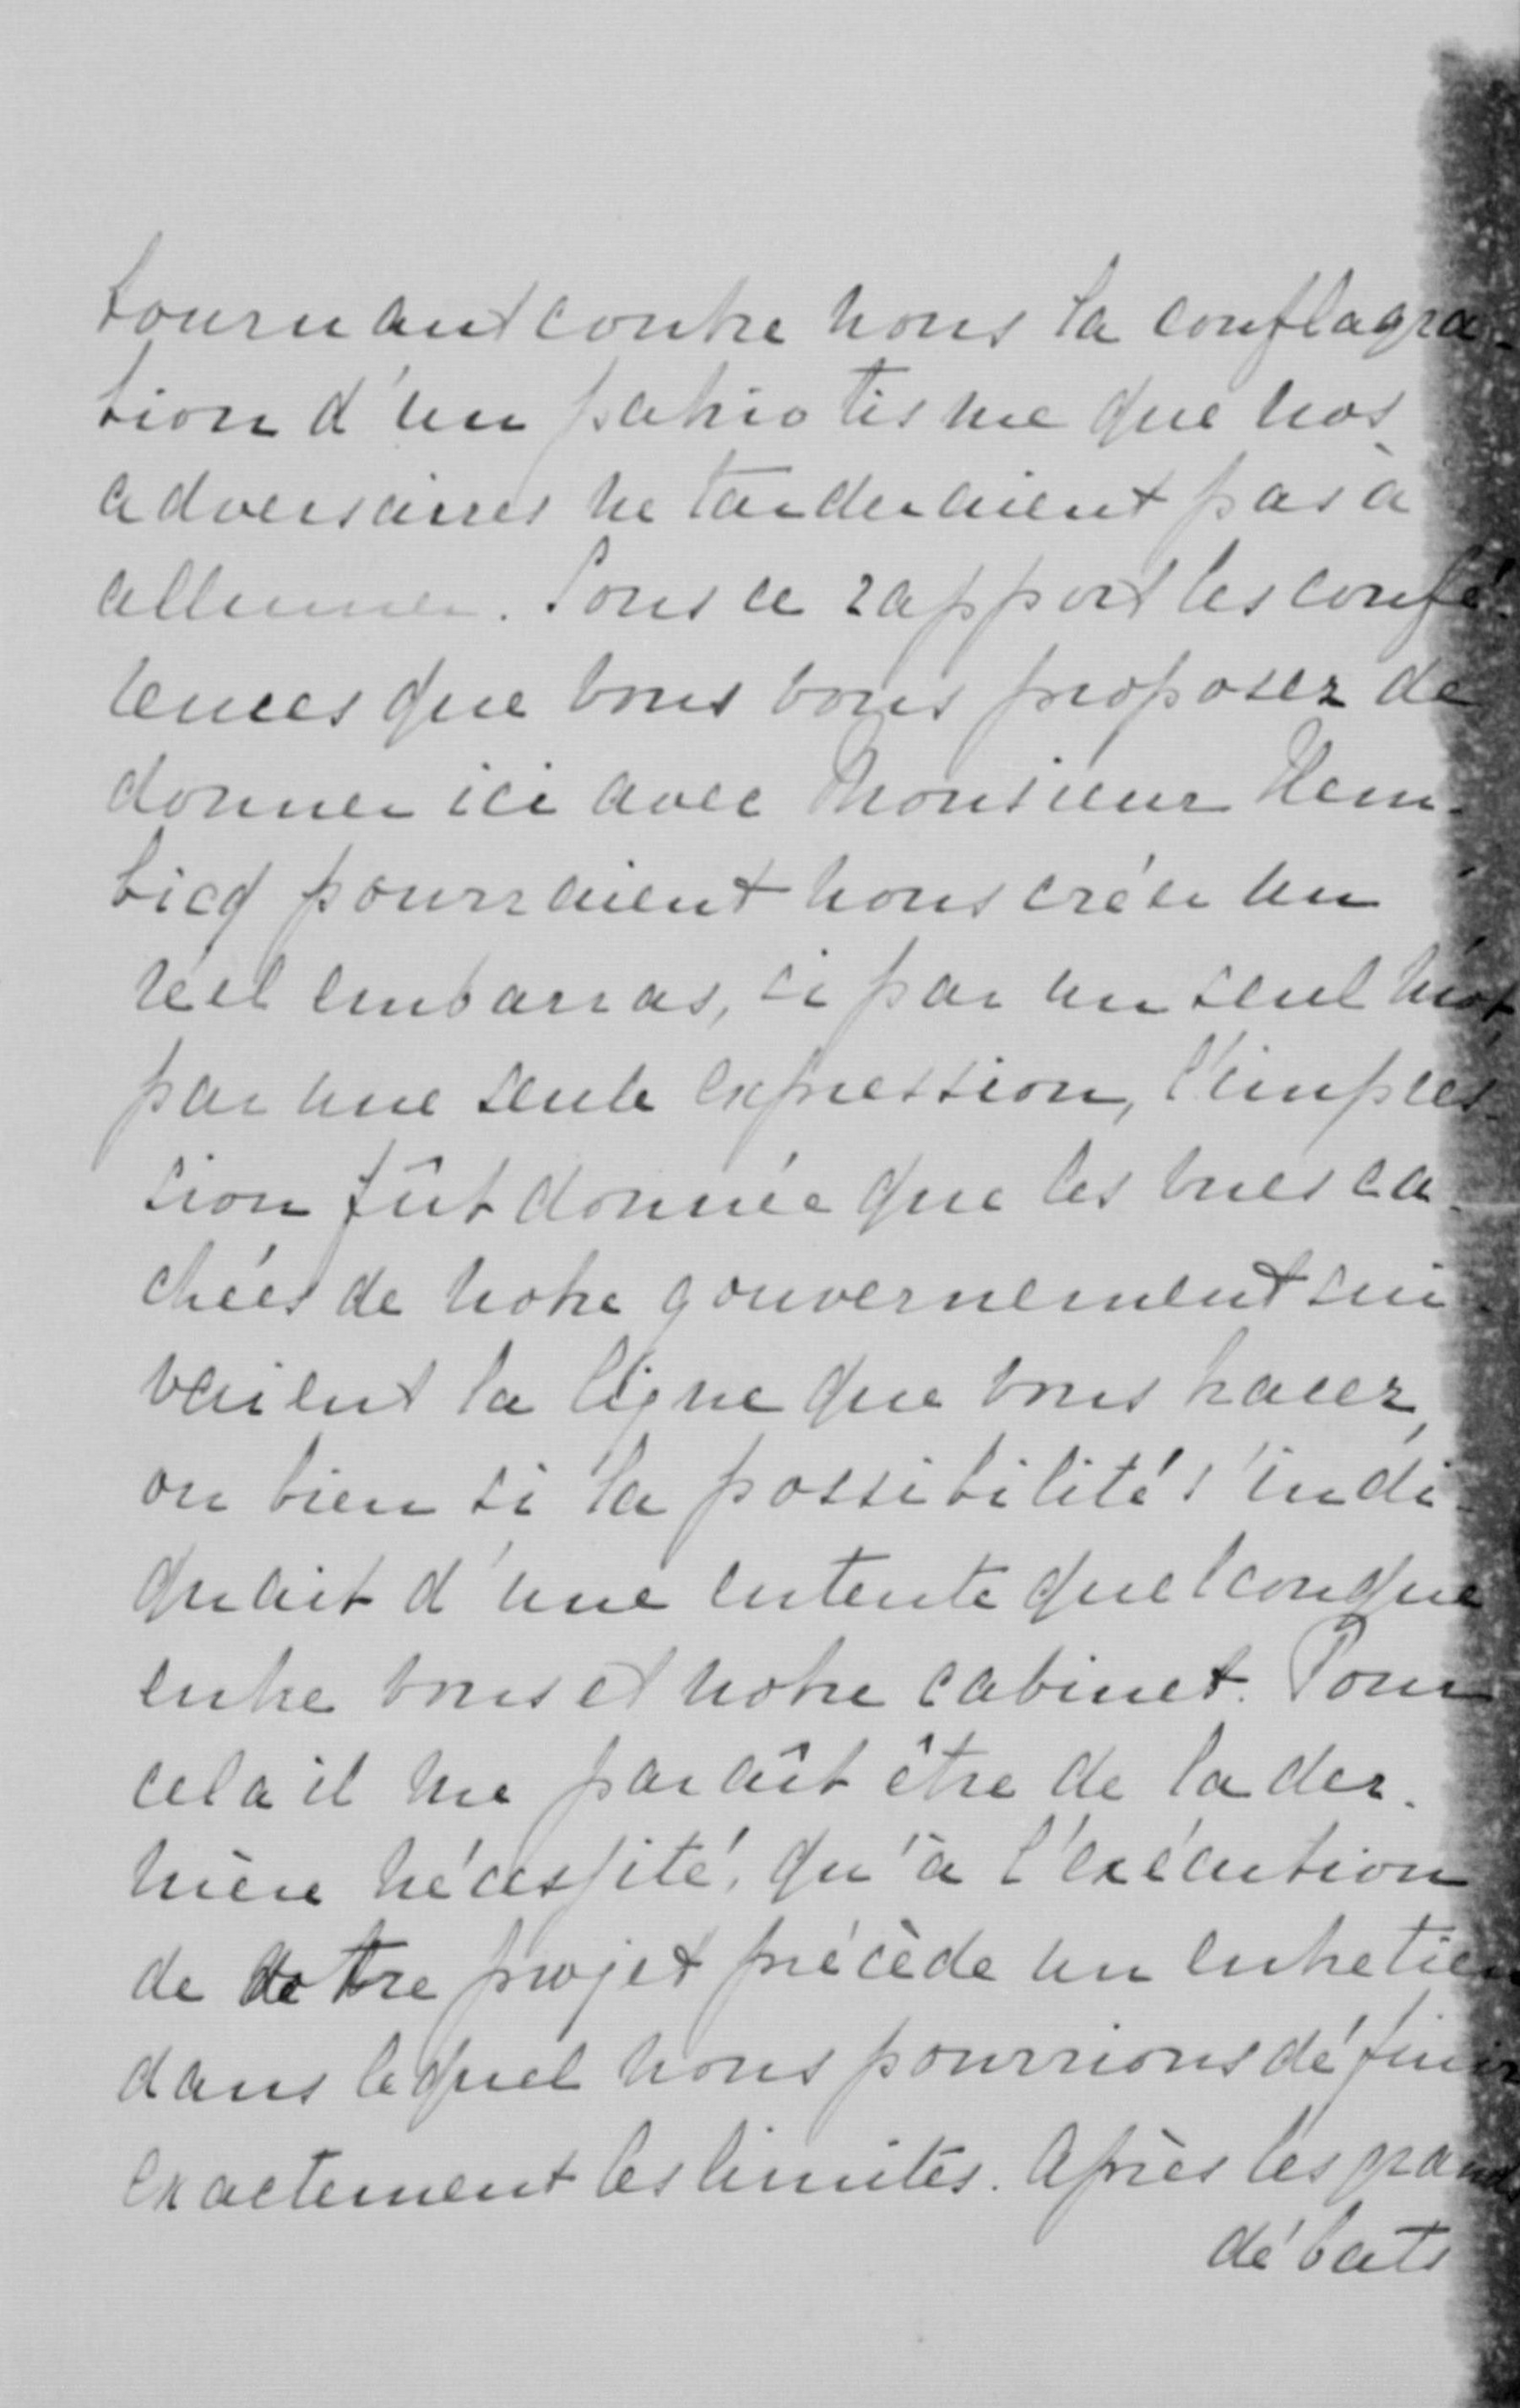 tournant contre nous la conflagra-
tion d'un patriotisme que nos
adversaires ne tarderaient pas à
allumer. Sous ce rapport les confé-
rences que vous vous proposez de
donner ici avec Monsieur Hem-
bicq pourraient nous créer un
réel embarras, si par un seul mot,
par une seule expression, l'impres-
sion fût donnée que les vues ca-
chées de notre gouvernement sui-
vaient la ligne que vous tracez,
ou bien si la possibilité s'indi-
quait d'une entente quelconque
entre vous et notre cabinet. Pour
cela il me paraît être de la der-
nière nécessité, qu'à l'exécution
de votre projet précède un entretien
dans lequel nous pourrions définir
exactement les limites. Après les grands
débats